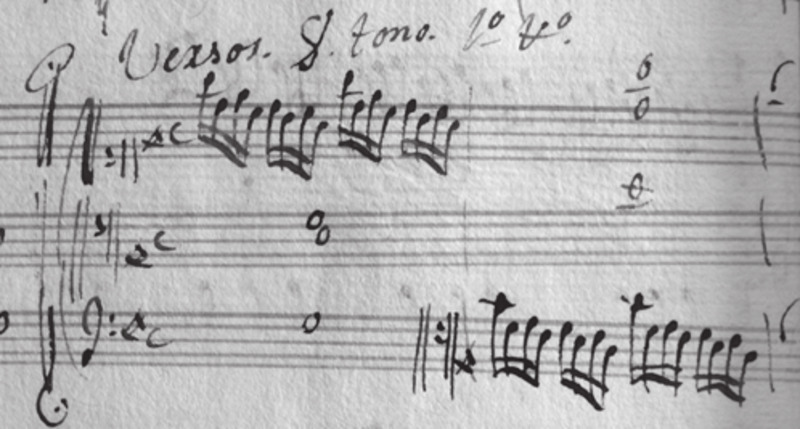 Versos. 8. tono. 1º Vº.